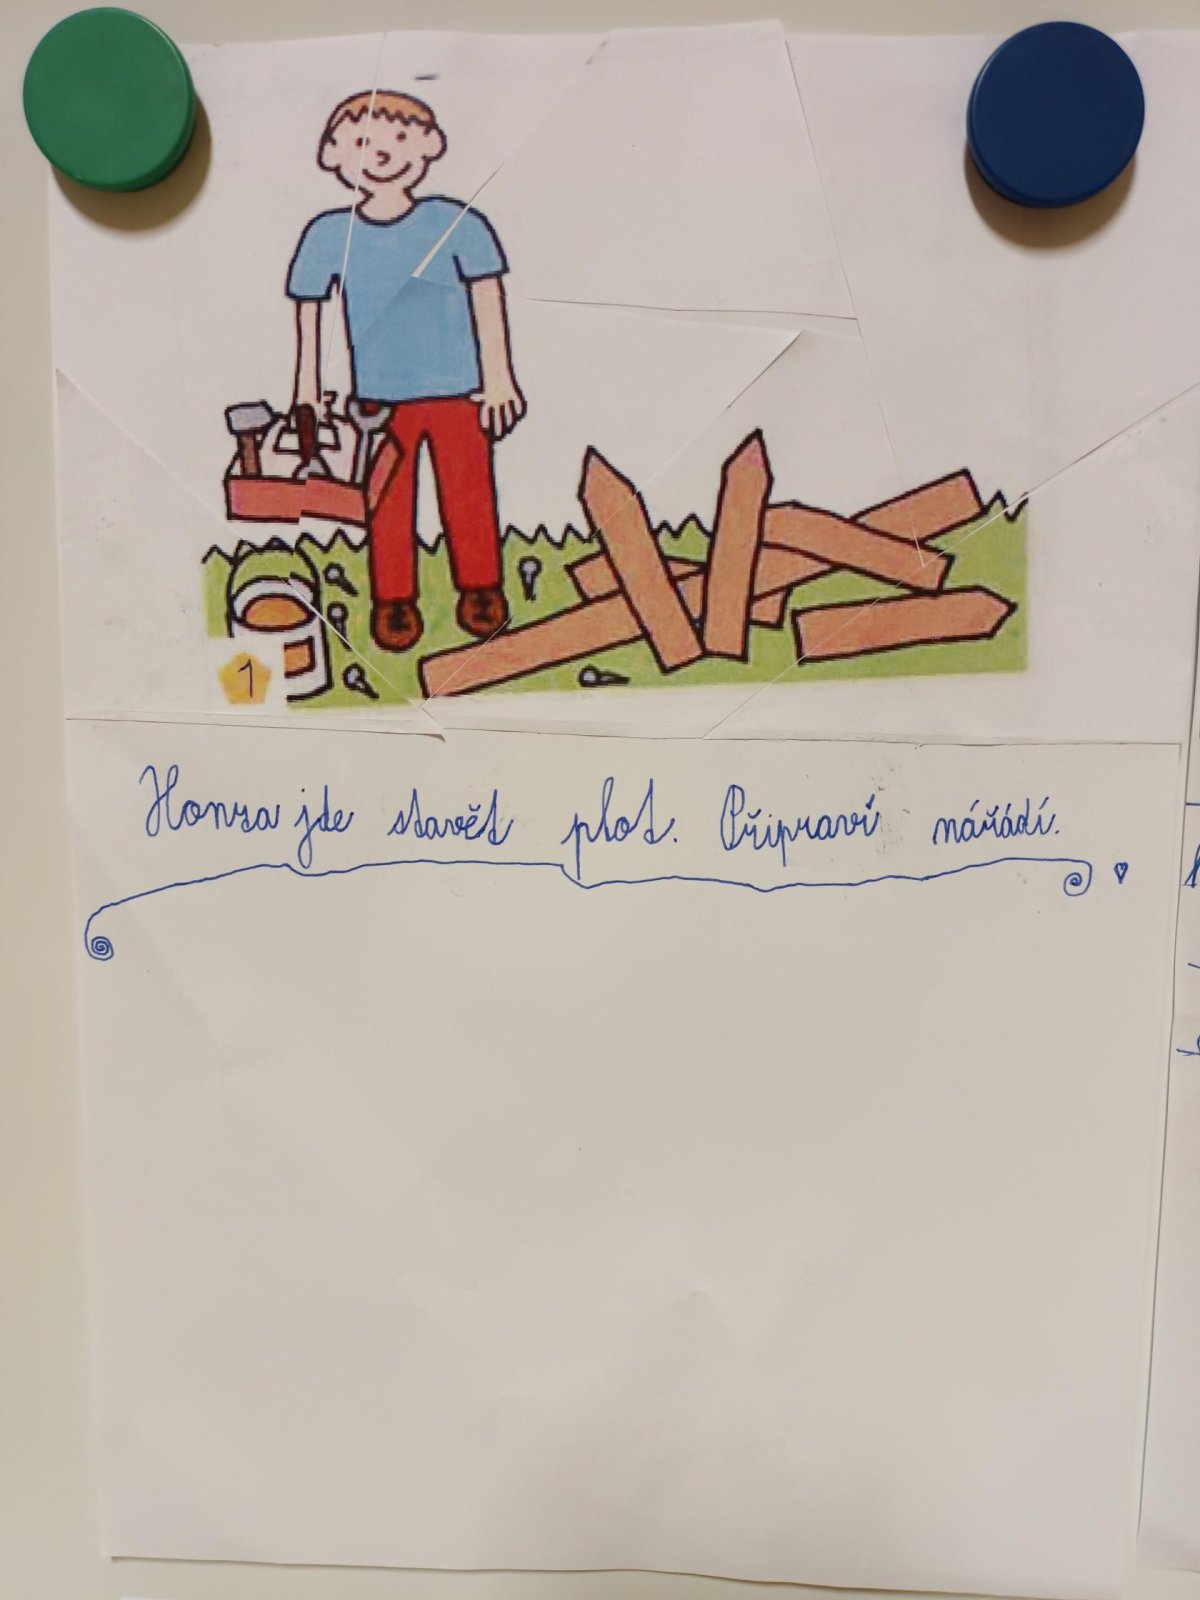 1
Honza jde stavět plot. Připraví nářádí.